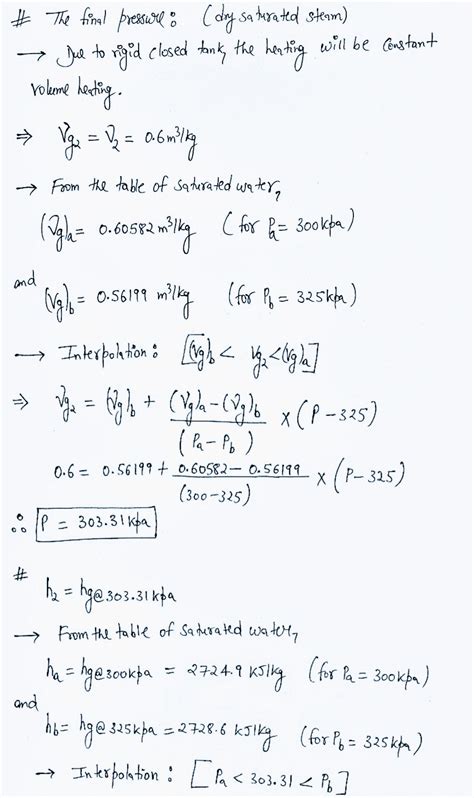 # The final pressure : (dry saturated steam)
→ Due to rigid closed tank, the heating will be constant
volume heating.
⇒ Vg₂ = V₂ = 0.6 m³/kg
→ From the table of saturated water,
(Vg)a = 0.60582 m³/kg (for Pa = 300 kpa)
and
(Vg)b = 0.56199 m³/kg (for Pb = 325 kpa)
→ Interpolation : [(Vg)b < Vg₂ < (Vg)a]
⇒ Vg₂ = (Vg)b + ((Vg)a – (Vg)b) / (Pa – Pb) × (P – 325)
0.6 = 0.56199 + (0.60582 – 0.56199) / (300 – 325) × (P – 325)
∴ P = 303.31 kpa
#
h₂ = hg@303.31kpa
→ From the table of saturated water,
ha = hg@300kpa = 2724.9 KJ/kg (for Pa = 300 kpa)
and
hb = hg@325kpa = 2728.6 KJ/kg (for Pb = 325 kpa)
→ Interpolation : [Pa < 303.31 < Pb]